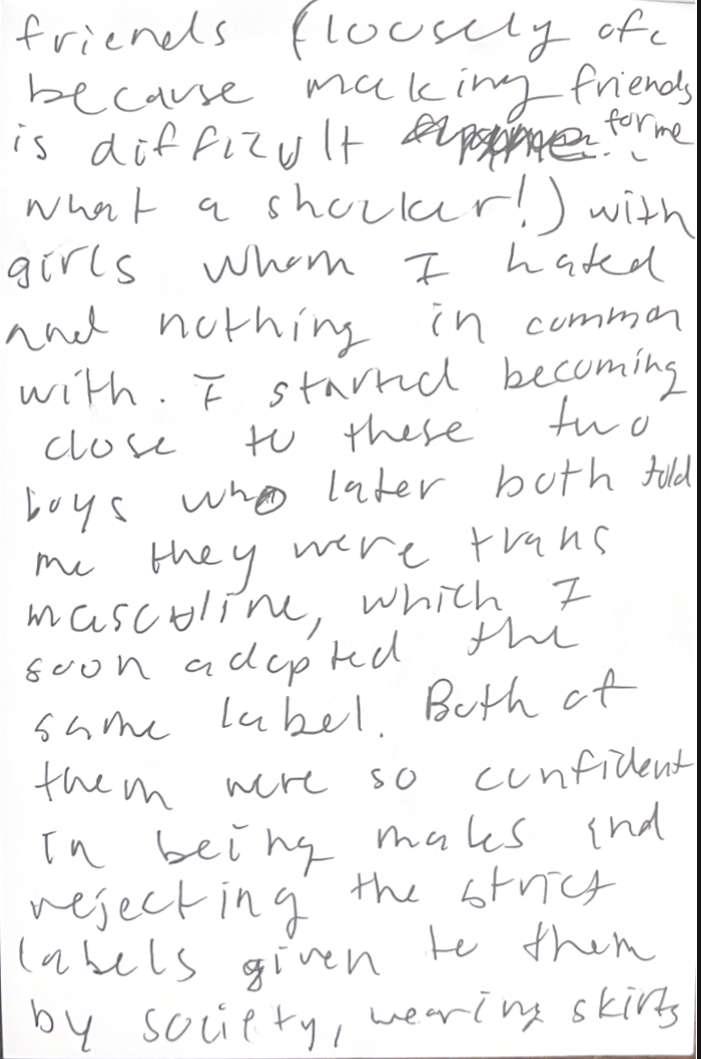 friends (loosely ofc
because making friends
is difficult for me
what a shocker!) with
girls whom I hated
and nothing in common
with. I started becoming
close to these two
boys who later both told
me they were trans
masculine, which I
soon adopted the
same label. Both of
them were so confident
in being males and
rejecting the strict
labels given to them
by society, wearing skirts